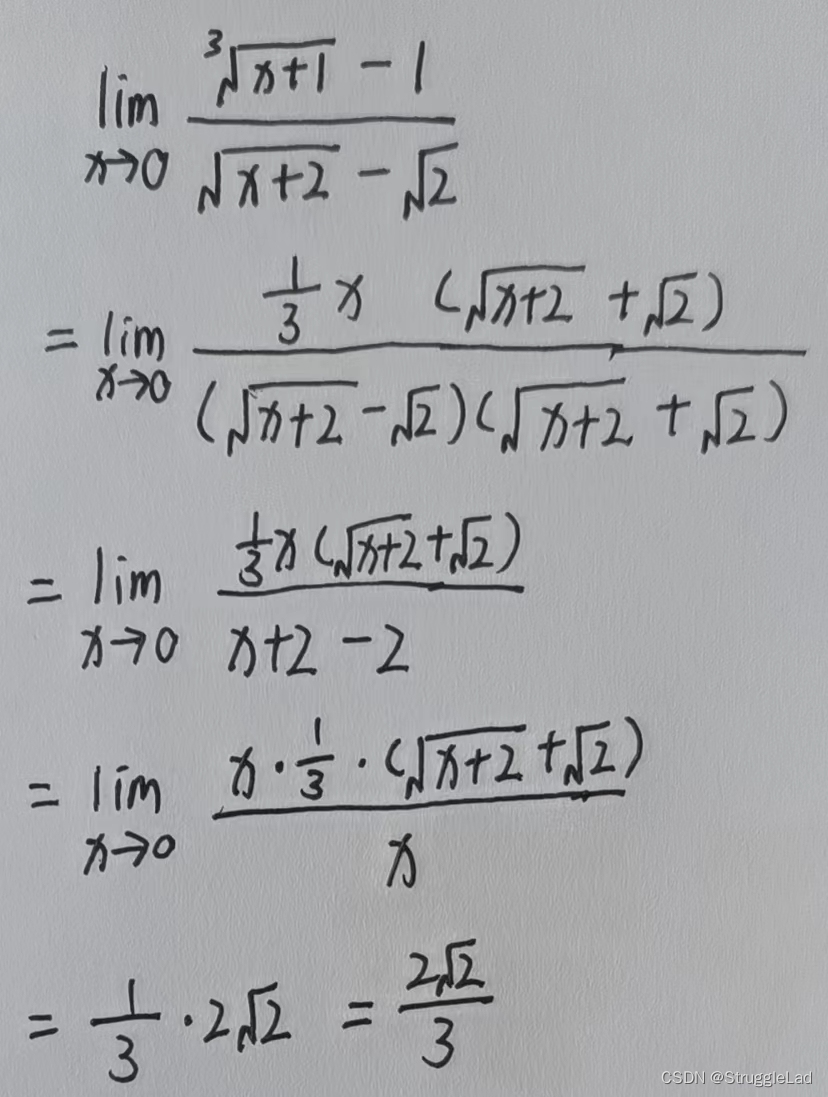 lim x→0 (∛(x+1) − 1) / (√(x+2) − √2)
= lim x→0 (1/3 x (√(x+2) + √2)) / ((√(x+2) − √2)(√(x+2) + √2))
= lim x→0 (1/3 x (√(x+2) + √2)) / (x+2−2)
= lim x→0 (x · 1/3 · (√(x+2) + √2)) / x
= 1/3 · 2√2 = 2√2/3
CSDN @StruggleLad